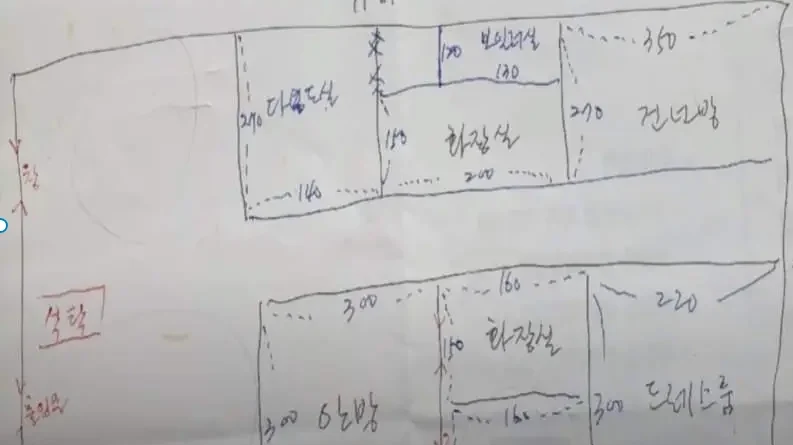 120
보일러실
130
350
다용도실
270
140
150
화장실
200
270
건넌방
창
식탁
300
안방
300
160
150
화장실
160
220
300
드레스룸